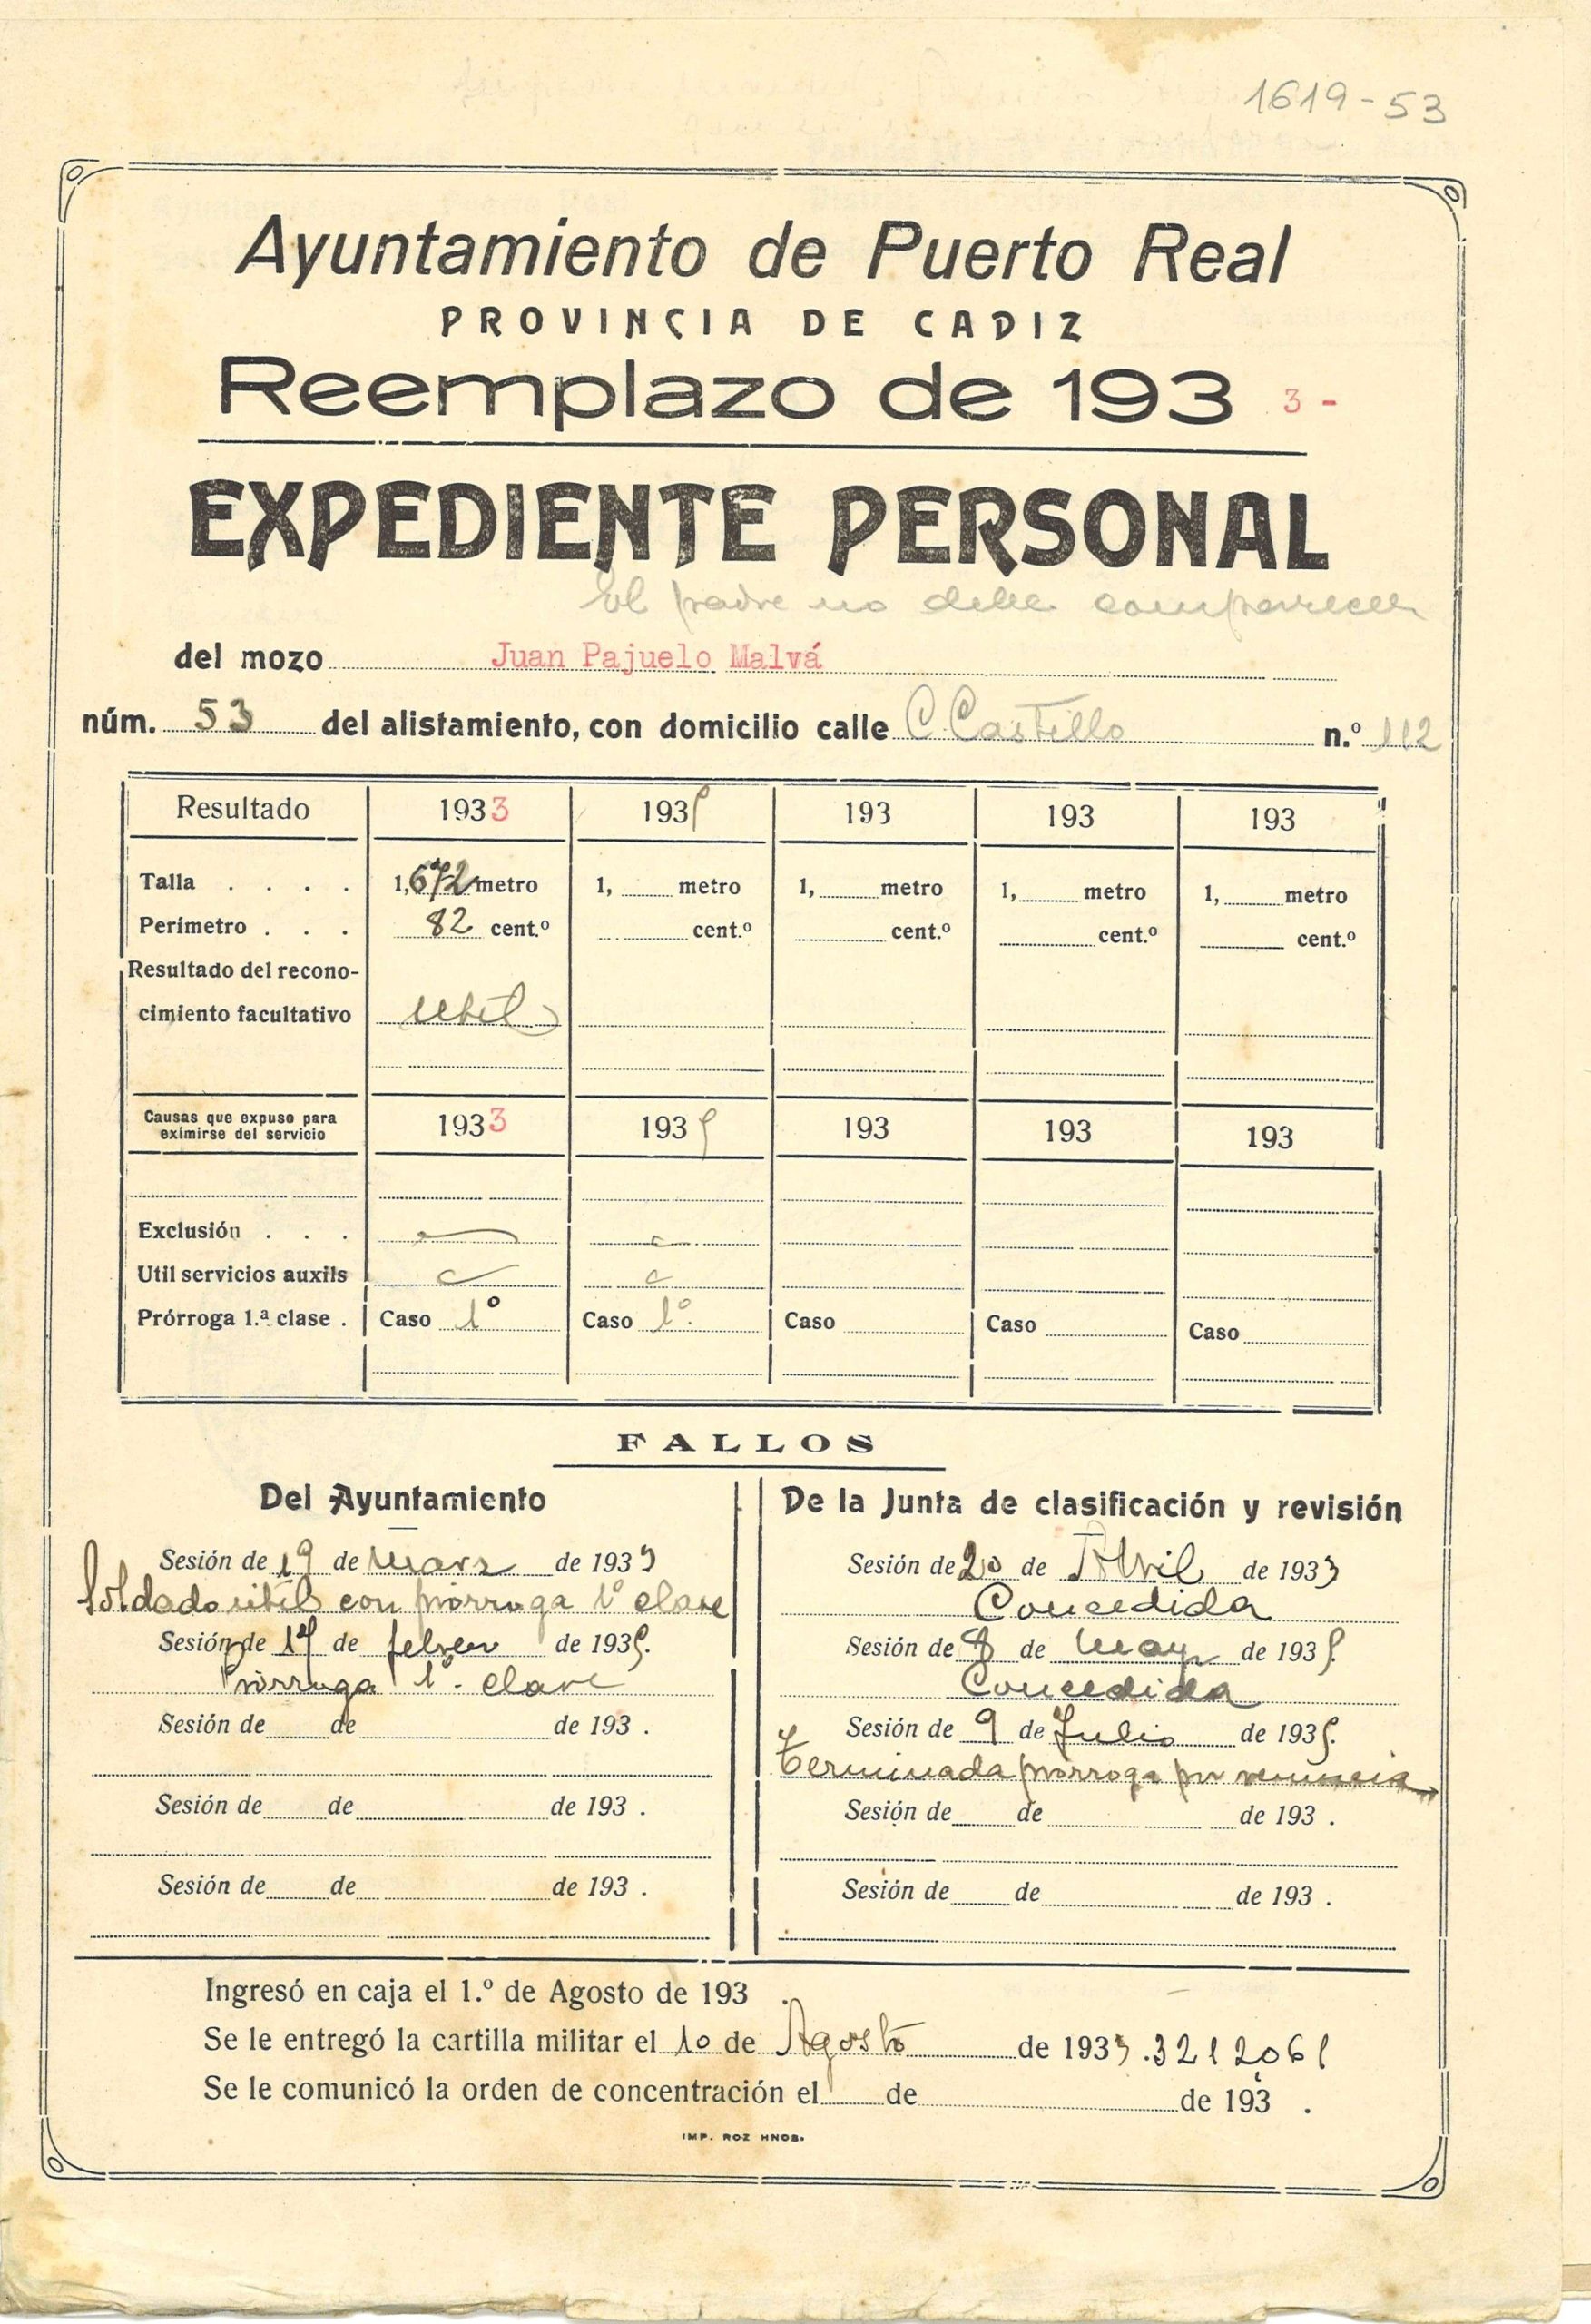 1619-53
Ayuntamiento de Puerto Real
PROVINCIA DE CADIZ
Reemplazo de 193 3 -
EXPEDIENTE PERSONAL
El padre no debe comparecer
del mozo Juan Pajuelo Malvá
núm. 53 del alistamiento, con domicilio calle C. Castillo n.º 112
Resultado 1933 1935 193 193 193
Talla . . . . 1,672 metro 1, metro 1, metro 1, metro 1, metro
Perímetro . . . 82 cent.º cent.º cent.º cent.º cent.º
Resultado del recono-
cimiento facultativo Util
Causas que expuso para
eximirse del servicio 1933 1935 193 193 193
Exclusión . . .
Util servicios auxils
Prórroga 1.ª clase . Caso 1º Caso 1º. Caso Caso Caso
FALLOS
Del Ayuntamiento
Sesión de 19 de Marz de 1933
Soldado util con prorroga 1ª clase
Sesión de 17 de febrer de 1935.
Prorroga 1ª. clase
Sesión de de de 193 .
Sesión de de de 193 .
Sesión de de de 193 .
De la Junta de clasificación y revisión
Sesión de 20 de Abril de 1933
Concedida
Sesión de 8 de May de 1935.
Concedida
Sesión de 9 de Julio de 1935.
Terminada prorroga por renuncia
Sesión de de de 193 .
Sesión de de de 193 .
Ingresó en caja el 1.º de Agosto de 193 .
Se le entregó la cartilla militar el 10 de Agosto de 1933 .3212061
Se le comunicó la orden de concentración el de de 193 .
IMP. ROZ HNOS.